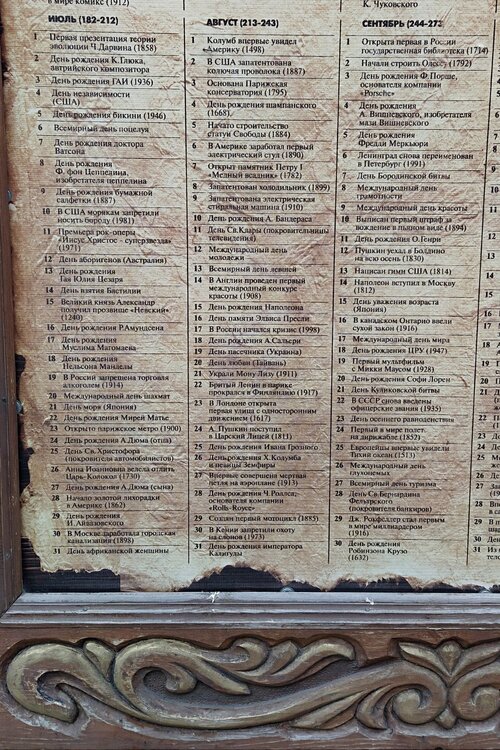 в мире комикс (1912)
ИЮЛЬ (182-212)
1 Первая презентация теории
эволюции Ч.Дарвина (1858)
2 День рождения К.Глюка,
австрийского композитора
3 День рождения ГАИ (1936)
4 День независимости
(США)
5 День рождения бикини (1946)
6 Всемирный день поцелуя
7 День рождения доктора
Ватсона
8 День рождения
Ф. фон Цеппелина,
изобретателя цеппелина
9 День рождения бумажной
салфетки (1887)
10 В США морякам запретили
носить бороду (1981)
11 Премьера рок-оперы
«Иисус Христос - суперзвезда»
(1971)
12 День аборигенов (Австралия)
13 День рождения
Гая Юлия Цезаря
14 День взятия Бастилии
15 Великий князь Александр
получил прозвище «Невский»
(1240)
16 День рождения Р.Амундсена
17 День рождения
Муслима Магомаева
18 День рождения
Нельсона Манделы
19 В России запрещена торговля
алкоголем (1914)
20 Международный день шахмат
21 День моря (Япония)
22 День рождения Мирей Матье
23 Открыто парижское метро (1900)
24 День рождения А.Дюма (отца)
25 День Св.Христофора
(покровителя автомобилистов)
26 Анна Иоанновна велела отлить
Царь-Колокол (1730)
27 День рождения А.Дюма (сына)
28 Начало золотой лихорадки
в Америке (1862)
29 День рождения
И.Айвазовского
30 В Москве заработала городская
канализация (1898)
31 День африканской женщины
АВГУСТ (213-243)
1 Колумб впервые увидел
Америку (1498)
2 В США запатентована
колючая проволока (1887)
3 Основана Парижская
консерватория (1795)
4 День рождения шампанского
(1668)
5 Начато строительство
статуи Свободы (1884)
6 В Америке заработал первый
электрический стул (1890)
7 Открыт памятник Петру I
«Медный всадник» (1782)
8 Запатентован холодильник (1899)
9 Запатентована электрическая
стиральная машина (1910)
10 День рождения А. Бандераса
11 День Св.Клары (покровительницы
телевидения)
12 Международный день
молодежи
13 Всемирный день левшей
14 В Англии проведен первый
международный конкурс
красоты (1908)
15 День рождения Наполеона
16 День памяти Элвиса Пресли
17 В России начался кризис (1998)
18 День рождения А.Сальери
19 День пасечника (Украина)
20 День любви (Тайвань)
21 Украли Мону Лизу (1911)
22 Бритый Ленин в парике
прокрался в Финляндию (1917)
23 В Лондоне открыта
первая улица с односторонним
движением (1617)
24 А. Пушкин поступил
в Царский Лицей (1811)
25 День рождения Ивана Грозного
26 День рождения Х.Колумба
и певицы Земфиры
27 Впервые совершена мертвая
петля на аэроплане (1913)
28 День рождения Ч.Роллса,
основателя компании
«Rolls-Royce»
29 Создан первый мотоцикл (1885)
30 В Кении запретили охоту
на слонов (1973)
31 День рождения императора
Калигулы
К. Чуковского
СЕНТЯБРЬ (244-273
1 Открыта первая в России
государственная библиотека (1714)
2 Начали строить Одессу (1792)
3 День рождения Ф.Порше,
основателя компании
«Porsche»
4 День рождения
А. Вишневского, изобретателя
мази Вишневского
5 День рождения
Фредди Меркьюри
6 Ленинград снова переименован
в Петербург (1991)
7 День Бородинской битвы
8 Международный день
грамотности
9 Международный день красоты
10 Выписан первый штраф за
вождение в пьяном виде (1894)
11 День рождения О.Генри
12 Пушкин уехал в Болдино
на всю осень (1830)
13 Написан гимн США (1814)
14 Наполеон вступил в Москву
(1812)
15 День уважения возраста
(Япония)
16 В канадском Онтарио ввели
сухой закон (1916)
17 Международный день мира
18 День рождения ЦРУ (1947)
19 Первый мультфильм
с Микки Маусом (1928)
20 День рождения Софи Лорен
21 День Куликовской битвы
22 В СССР снова введены
офицерские звания (1935)
23 День осеннего равноденствия
24 Первый в мире полет
на дирижабле (1852)
25 Европейцы впервые увидели
Тихий океан (1513)
26 Международный день
глухонемых
27 Всемирный день туризма
28 День Св.Бернардина
Фельтрского
(покровителя банкиров)
29 Дж. Рокфеллер стал первым
в мире миллиардером
(1916)
30 День рождения
Робинзона Крузо
(1632)